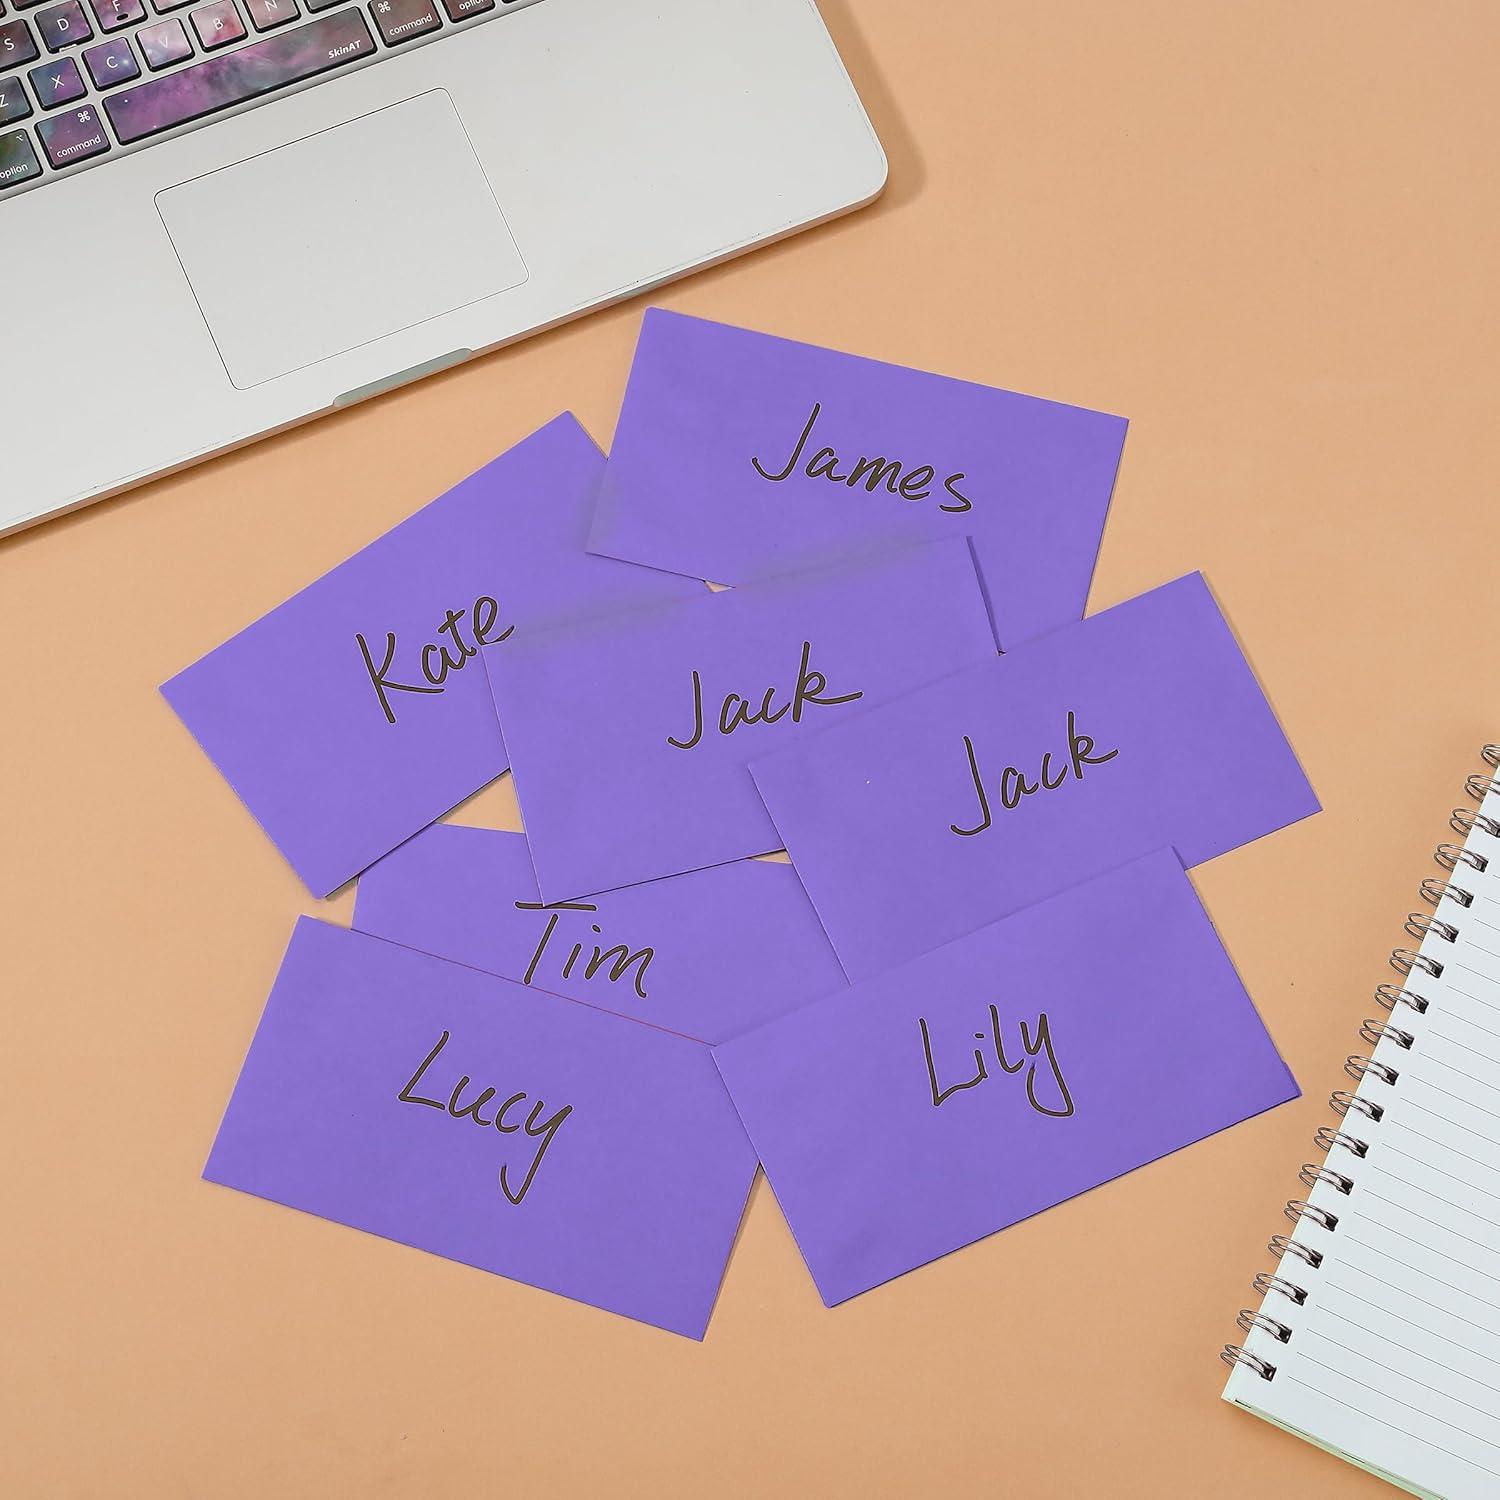 S D F V B N
Z X C SkinAT command option
option command
James
Kate
Jack
Jack
Tim
Lucy
Lily